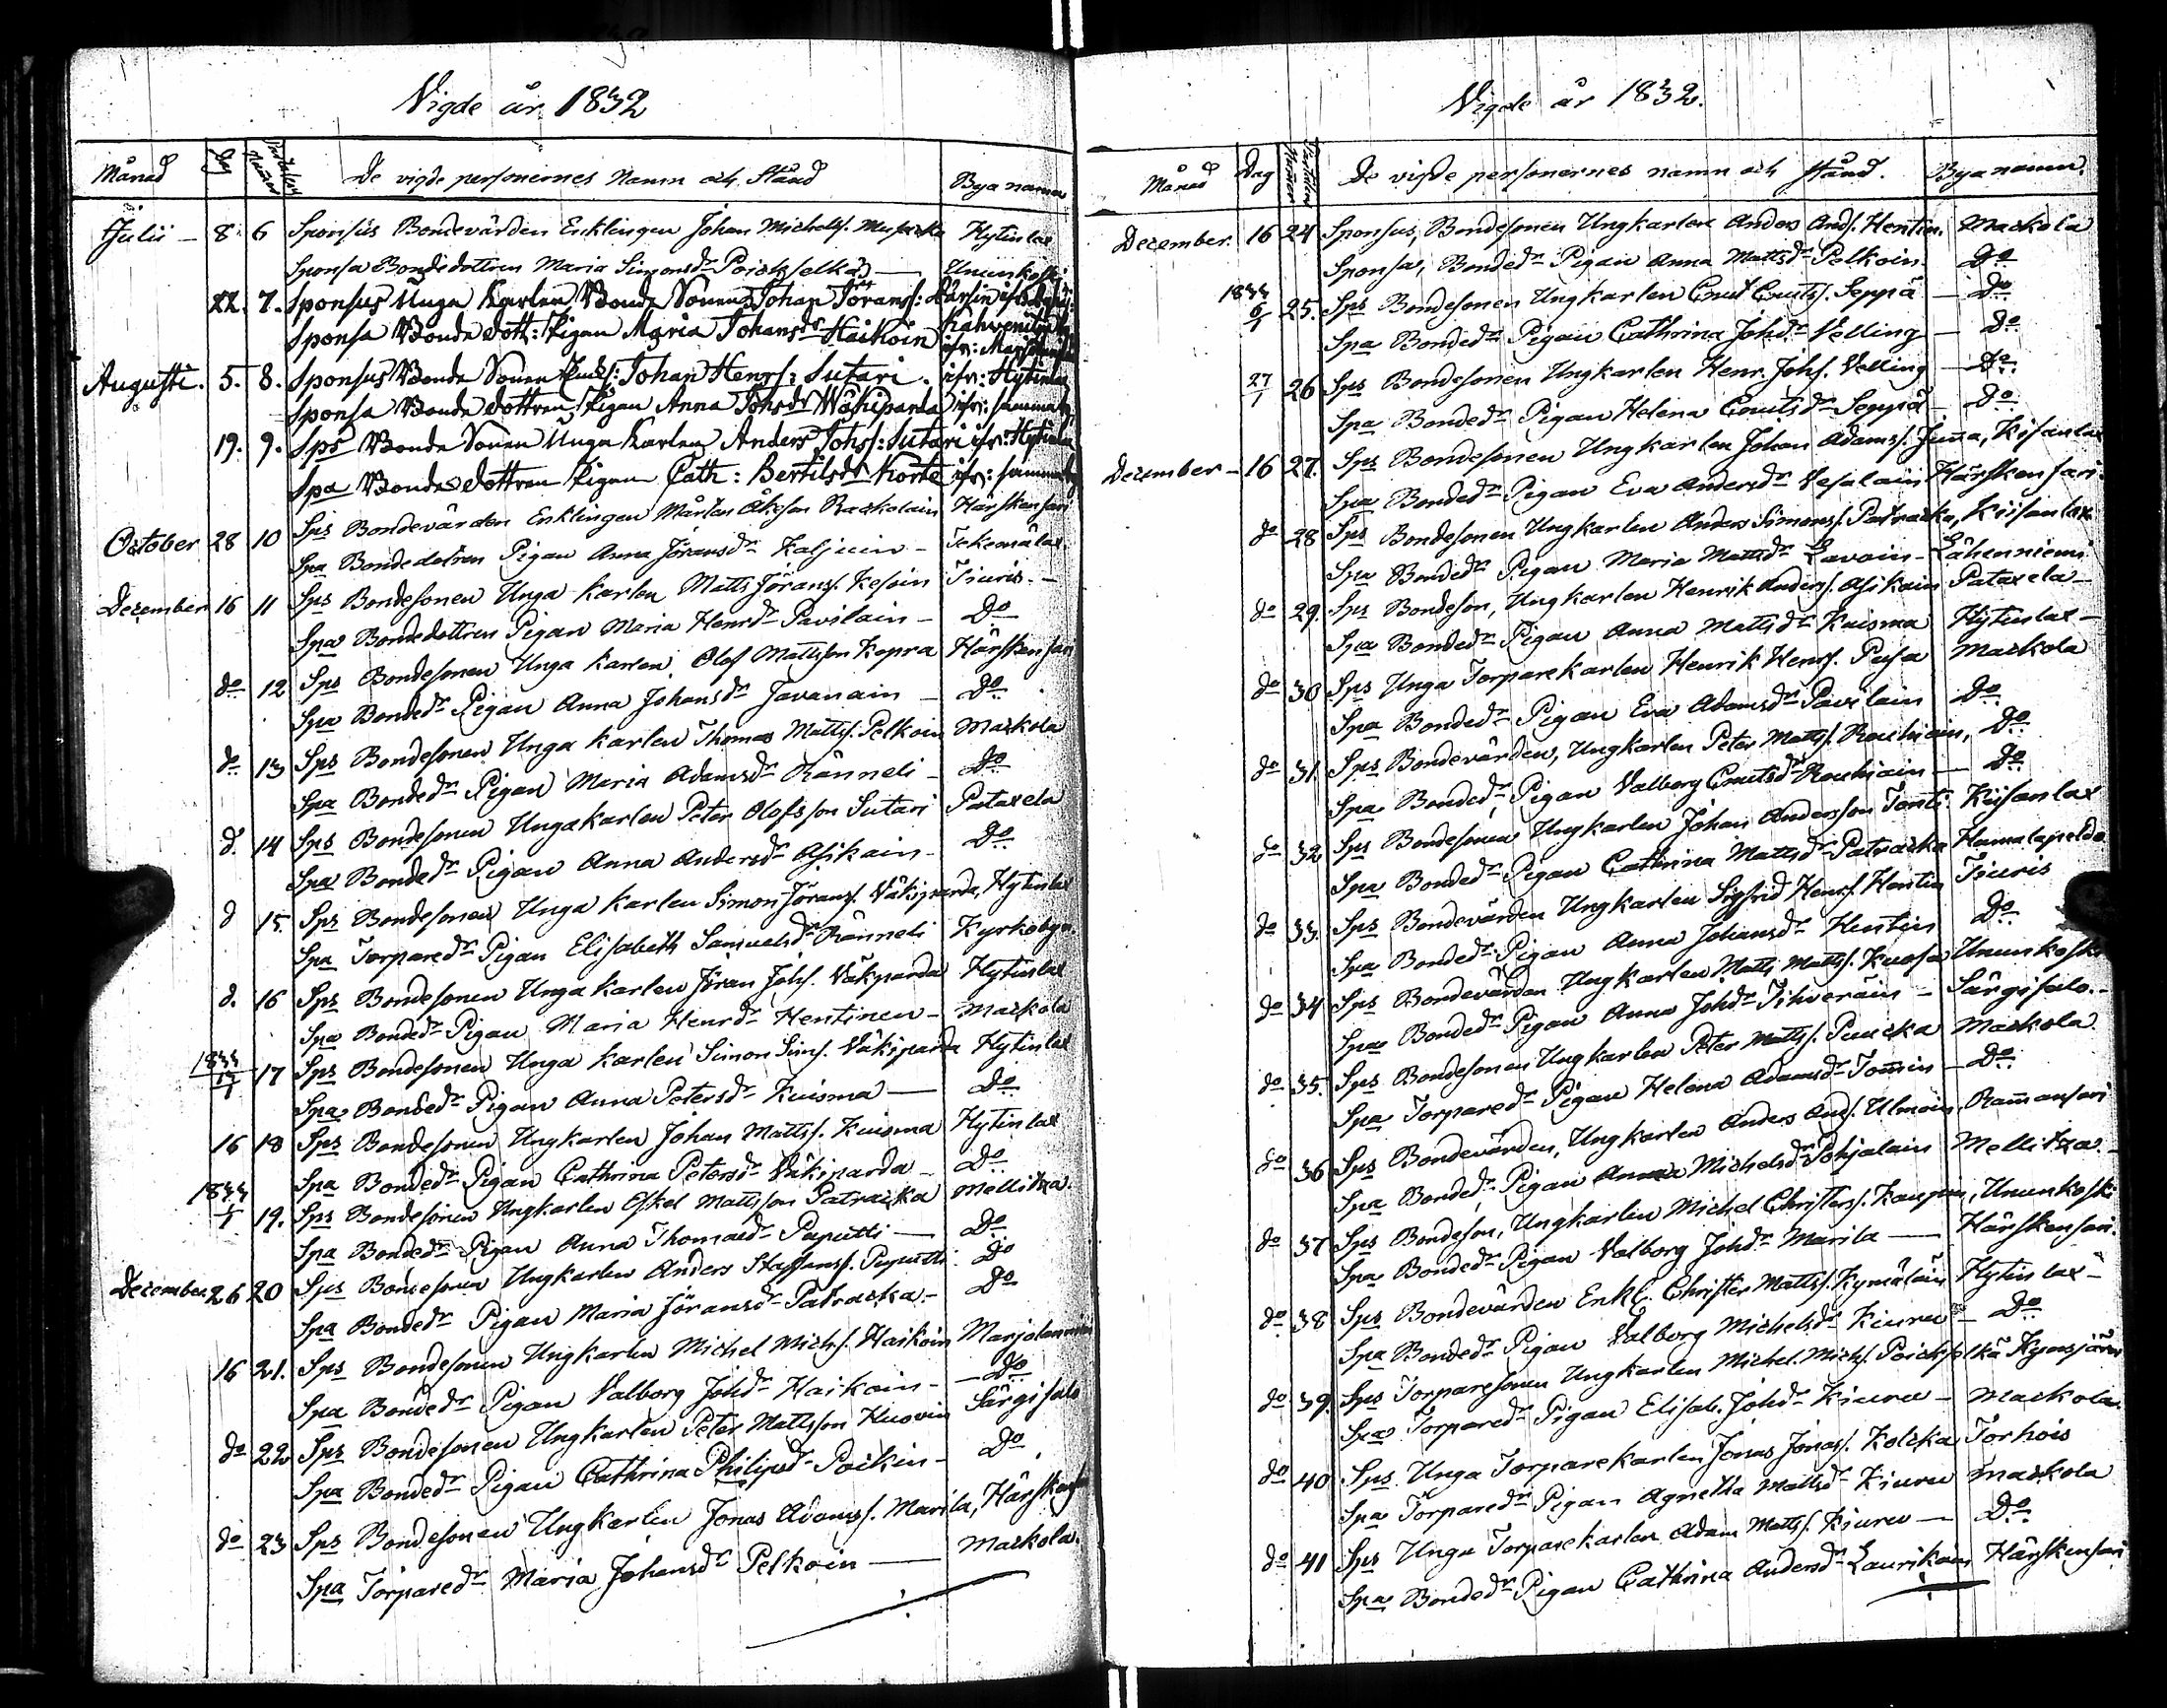 Vigde år 1832
Månad Dag Parternas Nummer De vigde personernes Namn och Stånd Bya namn
Julii — 8 6 Sponsus Bondevärden Enklingen Johan Michelss. Hytinlax
Sponsa Bondedottren Maria Simonsdr Poickselkä — Ununkoski
22. 7. Sponsus Unga Karlen Bonde Sonen Johan Jöranss:
Sponsa Bonde dott: Pigan Maria Johansdr Haikoin
Augusti. 5. 8. Sponsus Bonde Sonen Johan Henrss: Sutari. ifr: Hytinlax
Sponsa Bonde dottren Pigan Anna Johsdr Wäkiparda ifr: samma by
19. 9. Sps Bonde Sonen Unga Karlen Anders Johss: Sutari ifr: Hytinlax
Spa Bonde dottren Pigan Cath: Bertilsdr Korte ifr: samma by
October 28 10 Sps Bondevärden Enklingen Mårten Åkeson Raskolain Härskensari
Spa Bondedotren Pigan Anna Jöransdr Kaljuin — Tekemälax
December 16 11 Sps Bondesonen Unga Karlen Matts Jöranss. Kesoin Tiuris —
Spa Bondedottren Pigan Maria Henrdr Pavilain — Do
do 12 Sps Bondesonen Unga Karlen Olof Mattsson Kopra Härskensari
Spa Bondedr Pigan Anna Johansdr Javanain — Do
do 13 Sps Bondesonen Unga Karlen Thomas Mattss. Pelkoin Maskola
Spa Bondedr Pigan Maria Adamsdr Ränneli — Do
d. 14 Sps Bondesonen Unga Karlen Peter Olofsson Sutari Pataxela
Spa Bondedr Pigan Anna Andersdr Asikain — Do
d 15. Sps Bondesonen Unga Karlen Simon Jöranss. Väkiparda, Hytinlax
Spa Torparedr Pigan Elisabeth Samuelsdr Ränneli Kyrkobyn
d. 16 Sps Bondesonen Unga Karlen Jöran Johs. Väkparda Hytinlax
Spa Bondedr Pigan Maria Henrdr Hentinen — Maskola
1833 17 Sps Bondesonen Unga Karlen Simon Sims. Väkiparda Hytinlax
Spa Bondedr Pigan Anna Petersdr Kuisma — Do
16 18 Sps Bondesonen Ungkarlen Johan Mattss. Kuisma Hytinlax
Spa Bondedr Pigan Cathrina Petersdr Väkiparda — Do
1833 19. Sps Bondesonen Ungkarlen Eskel Mattsson Patracka Mellitza.
Spa Bondedr Pigan Anna Thomaedr Paputti — Do
December. 26 20 Sps Bondesonen Ungkarlen Anders Staffanss. Paputti Do
Spa Bondedr Pigan Maria Jöransdr Patracka — Do
16 21. Sps Bondesonen Ungkarlen Michel Michs. Haikoin Marjolanniemi
Spa Bondedr Pigan Valborg Johdr Haikoin — Do
do 22 Sps Bondesonen Ungkarlen Peter Mattsson Kuovin Särgisalo
Spa Bondedr Pigan Cathrina Philipsdr Poikin — Do
do 23 Sps Bondesonen Ungkarlen Jonas Adamss. Marila, Härskens.
Spa Torparedr Maria Johansdr Pelkoin — Maskola.
Vigde år 1832.
Månad Dag Parternas Numer De vigde personernes namn och stånd. Bya namn.
December. 16 24 Sponsus, Bondesonen Ungkarlen Anders Ands. Hentin. Maskola
Sponsa, Bondedr Pigan Anna Mattsdr Pelkoin. Do
1833 6/1 25. Sps Bondesonen Ungkarlen Cnut Cnutss. Seppä — Do
Spa Bondedr Pigan Cathrina Johdr Velling — Do
27/1 26 Sps Bondesonen Ungkarlen Henr. Johs. Velling — Do
Spa Bondedr Pigan Helena Cnutsdr Seppä — Do
December — 16 27. Sps Bondesonen Ungkarlen Johan Adamss. Juna, Kisanlax
Spa Bondedr Pigan Eva Andersdr Vesalain Härskensari
do 28 Sps Bondesonen Ungkarlen Anders Simonss. Patracka, Kiisanlax
Spa Bondedr Pigan Maria Mattsdr Lavoin — Lähenniemi
do 29. Sps Bondeson, Ungkarlen Henrik Anderss. Asikain Pataxela —
Spa Bondedr Pigan Anna Mattsdr Kuisma Hytinlax —
do 30. Sps Unga Torparekarlen Henrik Henrs. Pusa Maskola
Spa Bondedr Pigan Eva Adamsdr Pavilain Do
do 31. Sps Bondevärden, Ungkarlen Peter Mattss. Rouhiain, Do
Spa Bondedr Pigan Valborg Cnutsdr Rouhiain — Do
do 32 Sps Bondesonen Ungkarlen Johan Andersson Tonti Kiisanlax
Spa Bondedr Pigan Cathrina Mattsdr Patracka Hamalapeldo
do 33. Sps Bondevärden Ungkarlen Sigfrid Henrs. Hentin Tiuris
Spa Bondedr Pigan Anna Johansdr Hentin Do
do 34 Sps Bondevärden Ungkarlen Matts Mattss. Kuosa Ununkoski
Spa Bondedr Pigan Anna Johdr Tihveräin — Särgisalo. —
do 35. Sps Bondesonen Ungkarlen Peter Mattss. Puucka Maskola
Spa Torparedr Pigan Helena Adamsdr Tomin — Do
do 36 Sps Bondevärden, Ungkarlen Anders Ands. Ulmoin, Ramansari
Spa Bondedr Pigan Anna Michelsdr Pohjalain Mellitza. —
do 37 Sps Bondeson, Ungkarlen Michel Christerss. Kaupin, Ununkoski
Spa Bondedr Pigan Valborg Johdr Marila — Härskensari.
do 38 Sps Bondevärden Enkl. Christer Mattss. Kymäläin Hytinlax —
Spa Bondedr Pigan Valborg Michelsdr Kiuru — Do
do 39. Sps Torparesonen Ungkarlen Michel Michs. Poickselkä
Spa Torparedr Pigan Elisab. Johdr Kiuru — Maskola.
do 40 Sps Unga Torparekarlen Jonas Jonass. Kolcka Torhois
Spa Torparedr Pigan Agnetha Mattsdr Kiuru Maskola
do 41 Sps Unga Torparekarlen Adam Mattss. Kiuru — Do
Spa Bondedr Pigan Cathrina Andersdr Laurikain Härskensari